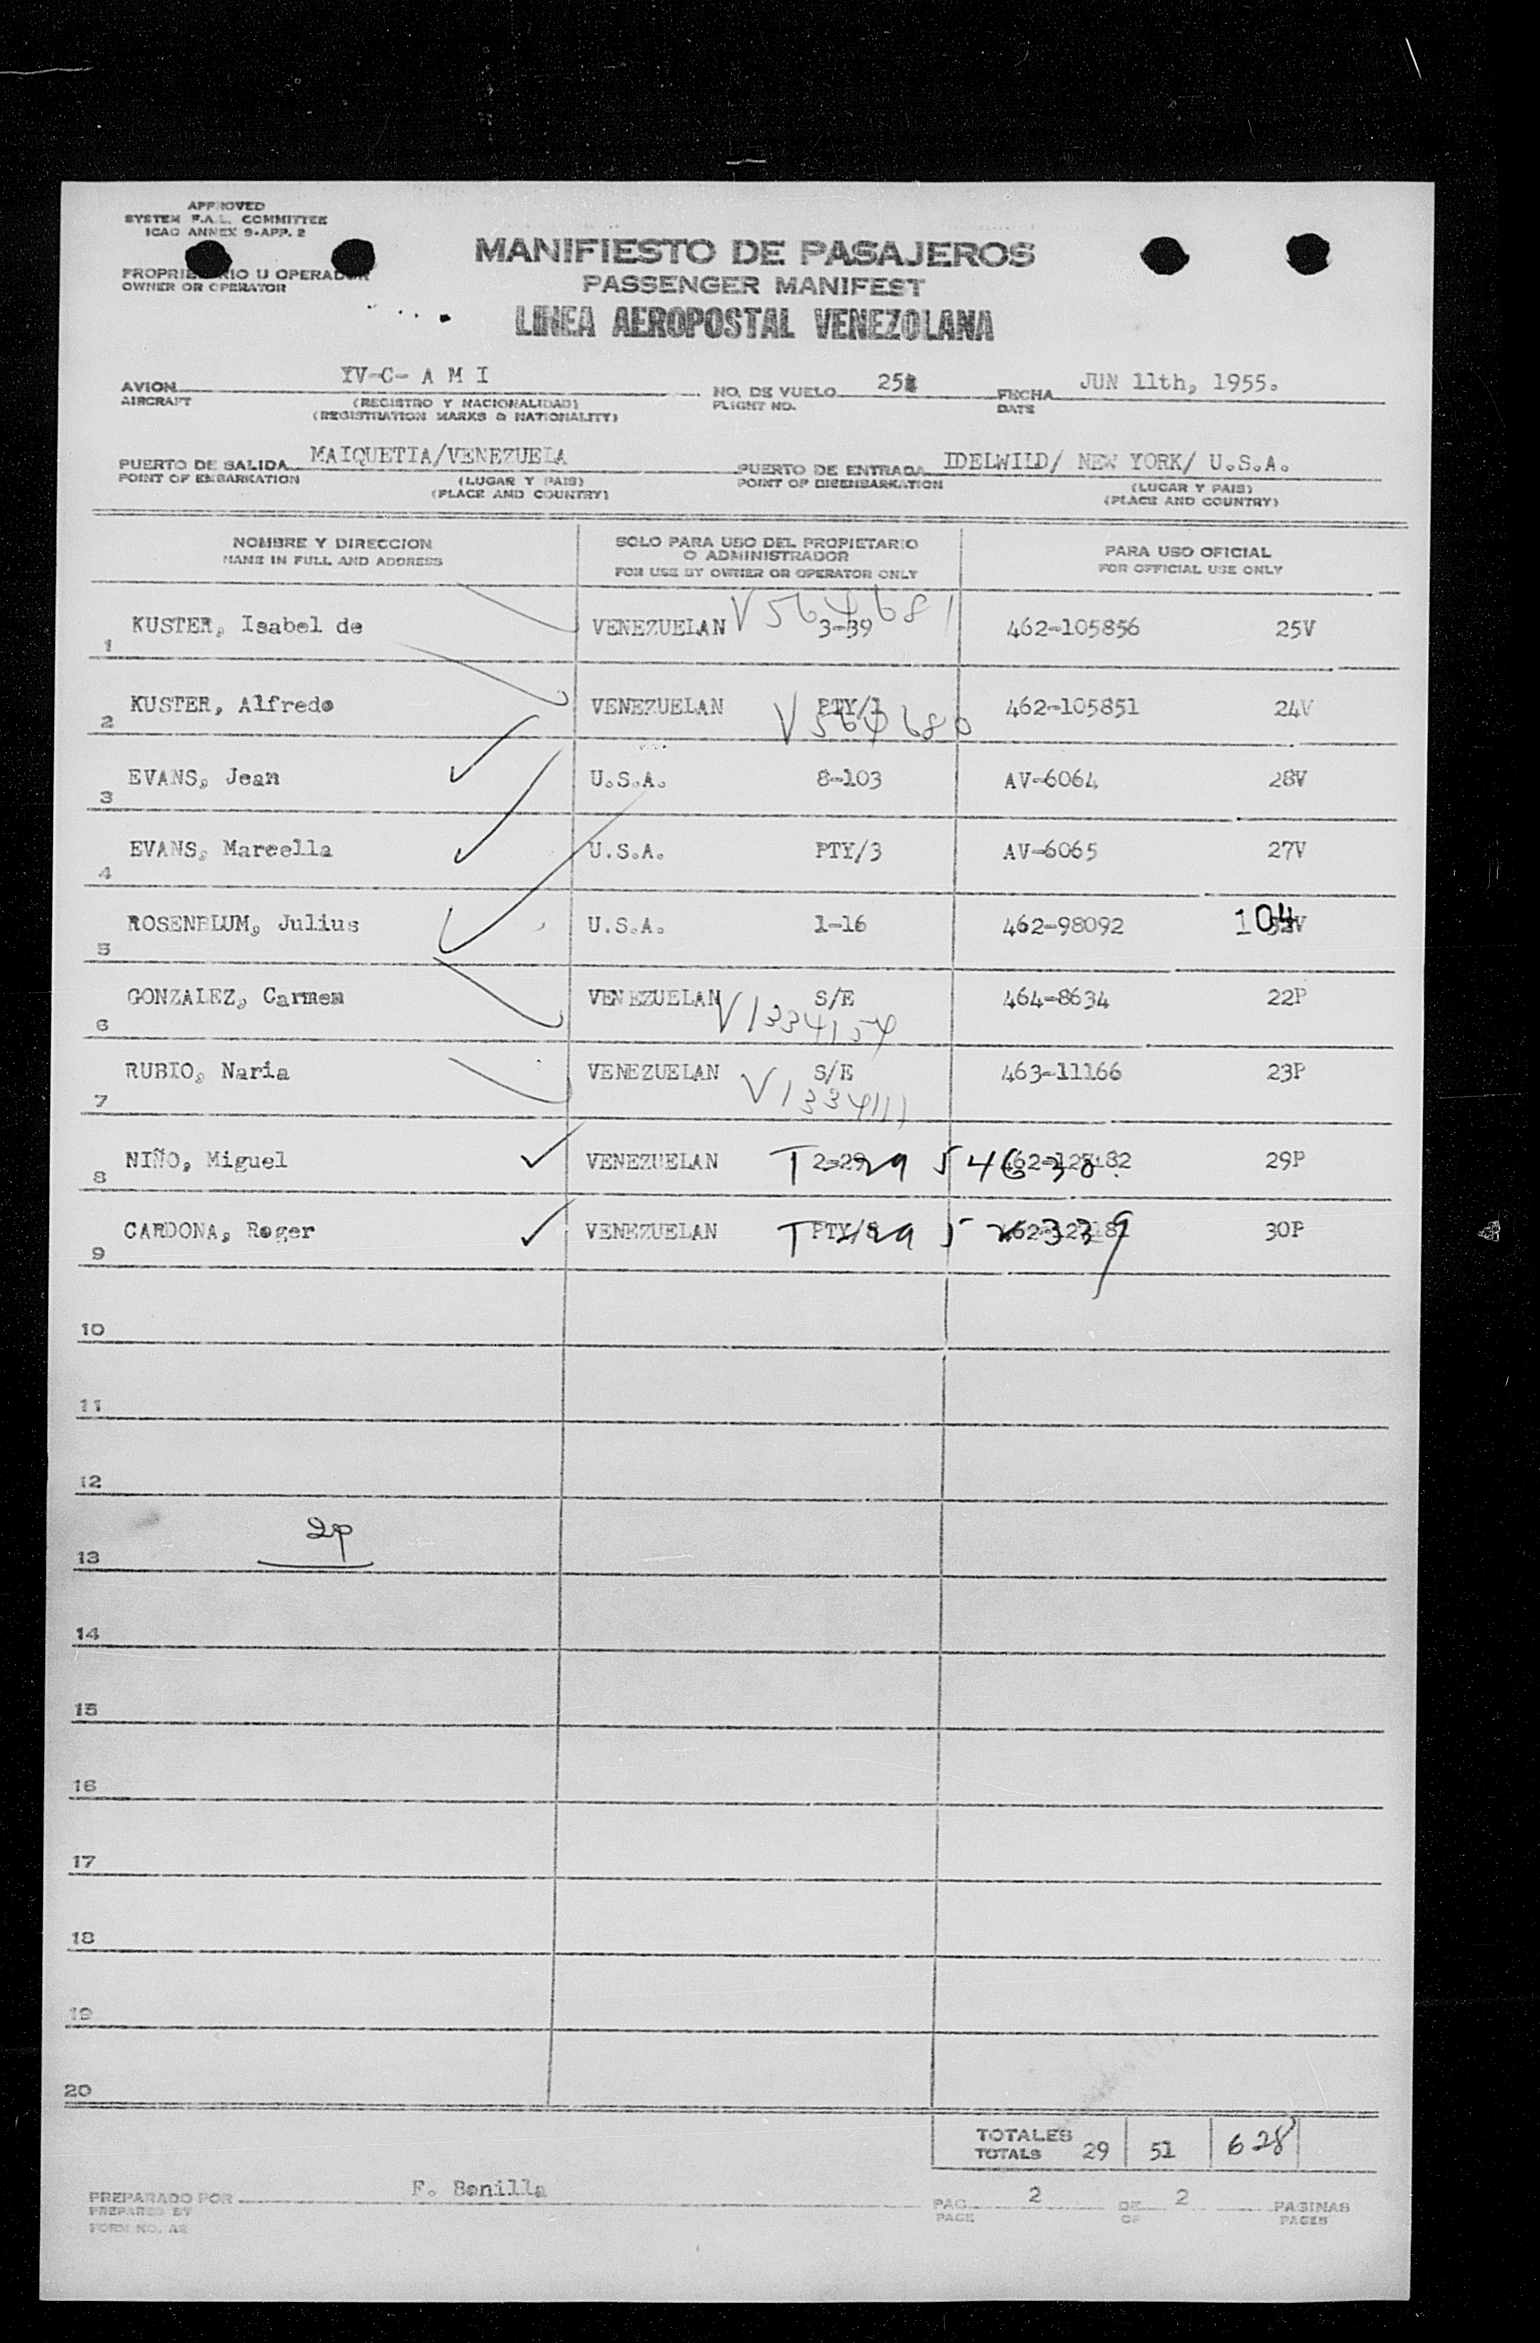 APPROVED
SYSTEM F.A.L. COMMITTEE
ICAO ANNEX 9-APP. 2
PROPRIETARIO U OPERADOR
OWNER OR OPERATOR
MANIFIESTO DE PASAJEROS
PASSENGER MANIFEST
LINEA AEROPOSTAL VENEZOLANA
AVION YV-C- A M I NO. DE VUELO FECHA JUN 11th, 1955.
AIRCRAFT (REGISTRO Y NACIONALIDAD) FLIGHT NO. DATE
(REGISTRATION MARKS & NATIONALITY)
PUERTO DE SALIDA MAIQUETIA/VENEZUELA PUERTO DE ENTRADA IDELWILD/ NEW YORK/ U.S.A.
POINT OF EMBARKATION (LUGAR Y PAIS) POINT OF DISEMBARKATION (LUGAR Y PAIS)
(PLACE AND COUNTRY) (PLACE AND COUNTRY)
NOMBRE Y DIRECCION SOLO PARA USO DEL PROPIETARIO O ADMINISTRADOR PARA USO OFICIAL
NAME IN FULL AND ADDRESS FOR USE BY OWNER OR OPERATOR ONLY FOR OFFICIAL USE ONLY
V564681
1 KUSTER, Isabel de VENEZUELAN 3-39 462-105856 25V
2 KUSTER, Alfredo VENEZUELAN PTY/1 462-105851 24V
V564680
3 EVANS, Jean U.S.A. 8-103 AV-6064 28V
4 EVANS, Marcella U.S.A. PTY/3 AV-6065 27V
5 ROSENBLUM, Julius U.S.A. 1-16 462-98092 104
6 GONZALEZ, Carmen VENEZUELAN S/E 464-8634 22P
V1334154
7 RUBIO, Naria VENEZUELAN S/E 463-11166 23P
V1334111
8 NIÑO, Miguel VENEZUELAN 29P
9 CARDONA, Roger VENEZUELAN 30P
10
11
12
2P
13
14
15
16
17
18
19
20
TOTALES
TOTALS 29 51 628
PREPARADO POR F. Bonilla PAG. 2 DE 2 PAGINAS
PREPARED BY PAGE OF PAGES
FORM NO. A2